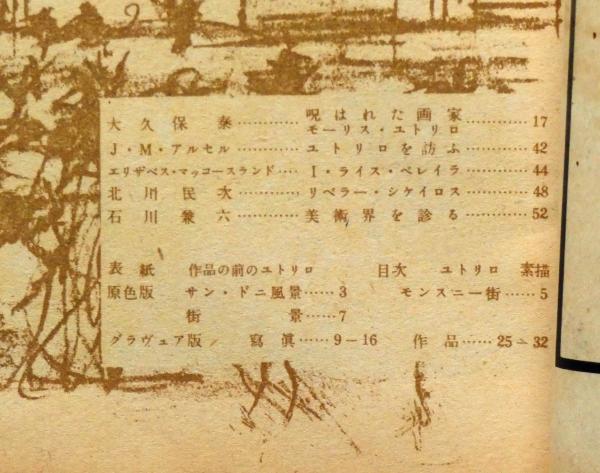 大久保泰…………呪はれた画家モーリス・ユトリロ…………17
J・M・アルセル…………ユトリロを訪ふ…………42
エリザベス・マッコースランド…I・ライス・ペレイラ…………44
北川民次…………リベラー・シケイロス…………48
石川兼六…………美術界を診る…………52
表紙 作品の前のユトリロ 目次 ユトリロ 素描
原色版 サン・ドニ風景……3 モンスニー街……5
街景……7
グラヴュア版 寫眞……9－16 作品……25－32